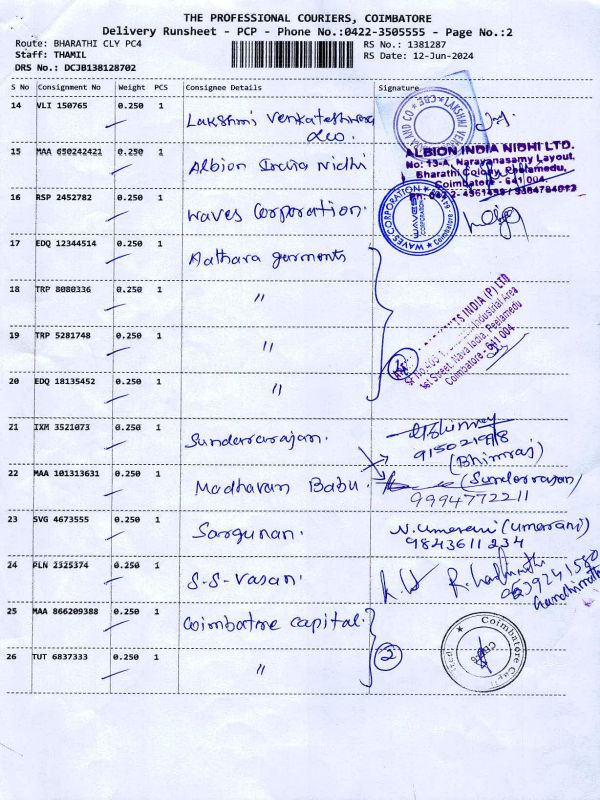 THE PROFESSIONAL COURIERS, COIMBATORE
Delivery Runsheet - PCP - Phone No.:0422-3505555 - Page No.:2
Route: BHARATHI CLY PC4
RS No.: 1381287
Staff: THAMIL
RS Date: 12-Jun-2024
DRS No.: DCJB138128702
S No Consignment No Weight PCS Consignee Details Signature
14 VLI 150765 0.250 1 Lakshmi Venkateshwara
15 MAA 650242421 0.250 1 Albion India Nidhi
ALBION INDIA NIDHI LTD.
No: 13-A, Narayanasamy Layout,
Bharathi Colony, Peelamedu,
Coimbatore - 641 004.
16 RSP 2452782 0.250 1 Waves Corporation.
WAVES CORPORATION
Coimbatore
17 EDQ 12344514 0.250 1 Aathava garments
18 TRP 8080336 0.250 1 "
19 TRP 5281748 0.250 1 "
INDIA (P) LTD
Industrial Area
1st Street, Nava India, Peelamedu
Coimbatore - 641 004
4
20 EDQ 18135452 0.250 1 "
21 IXM 3521073 0.250 1 Sundararajan.
(Bhimraj)
22 MAA 101313631 0.250 1 Madhavan Babu.
(Sundarrajan)
9994772211
23 SVG 4673555 0.250 1 Sargunan.
N.Umarani (Umarani)
9843611234
24 PLN 2525374 0.250 1 S-S-Vasan.
25 MAA 866209388 0.250 1 Coimbatore capital.
Coimbatore Capit
2
26 TUT 6837333 0.250 1 "